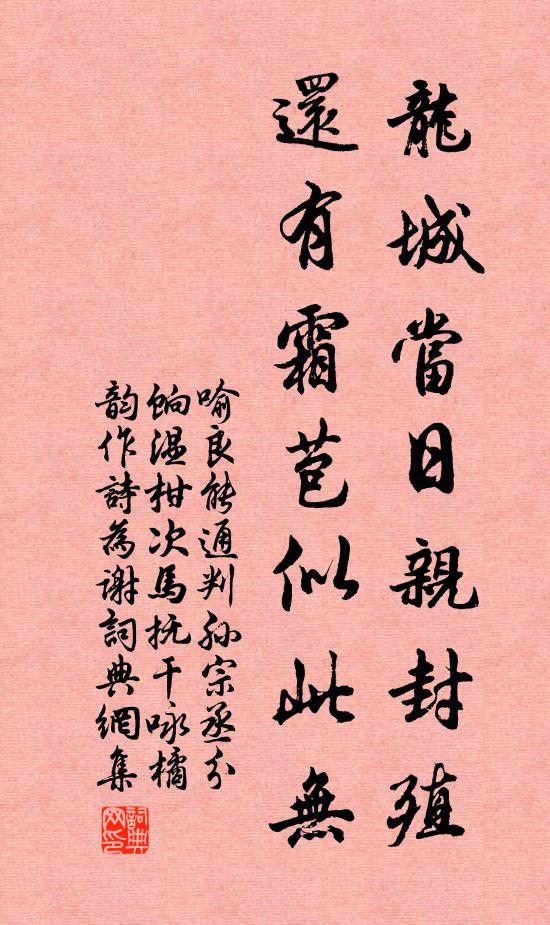 龍城當日親封殖
還有霜苞似此無
喻良能通判孙宗丞分
餉温柑次馬抚干咏橘
韵作詩為谢詞典網集
詞典网印